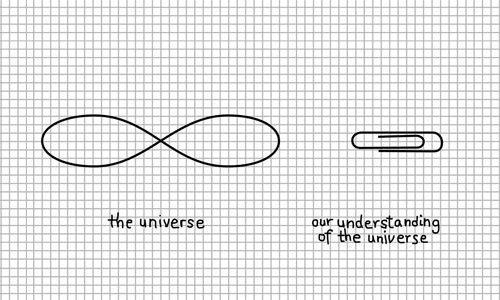 the universe
our understanding
of the universe